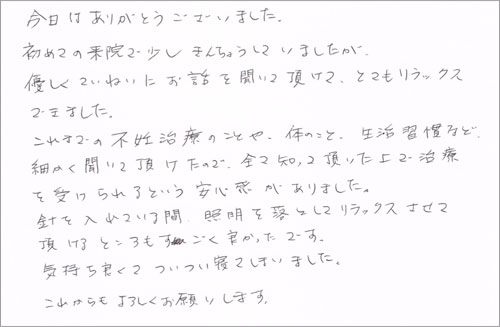 今日はありがとうございました。
初めての来院で少しきんちょうしていましたが、
優しくていねいにお話を聞いて頂けて、とてもリラックス
できました。
これまでの不妊治療のことや、体のこと、生活習慣など、
細かく聞いて頂けたので、全て知って頂いた上で治療
を受けられるという安心感がありました。
針を入れている間、照明を落としてリラックスさせて
頂けるところもすごく良かったです。
気持ち良くてついつい寝てしまいました。
これからもよろしくお願いします。